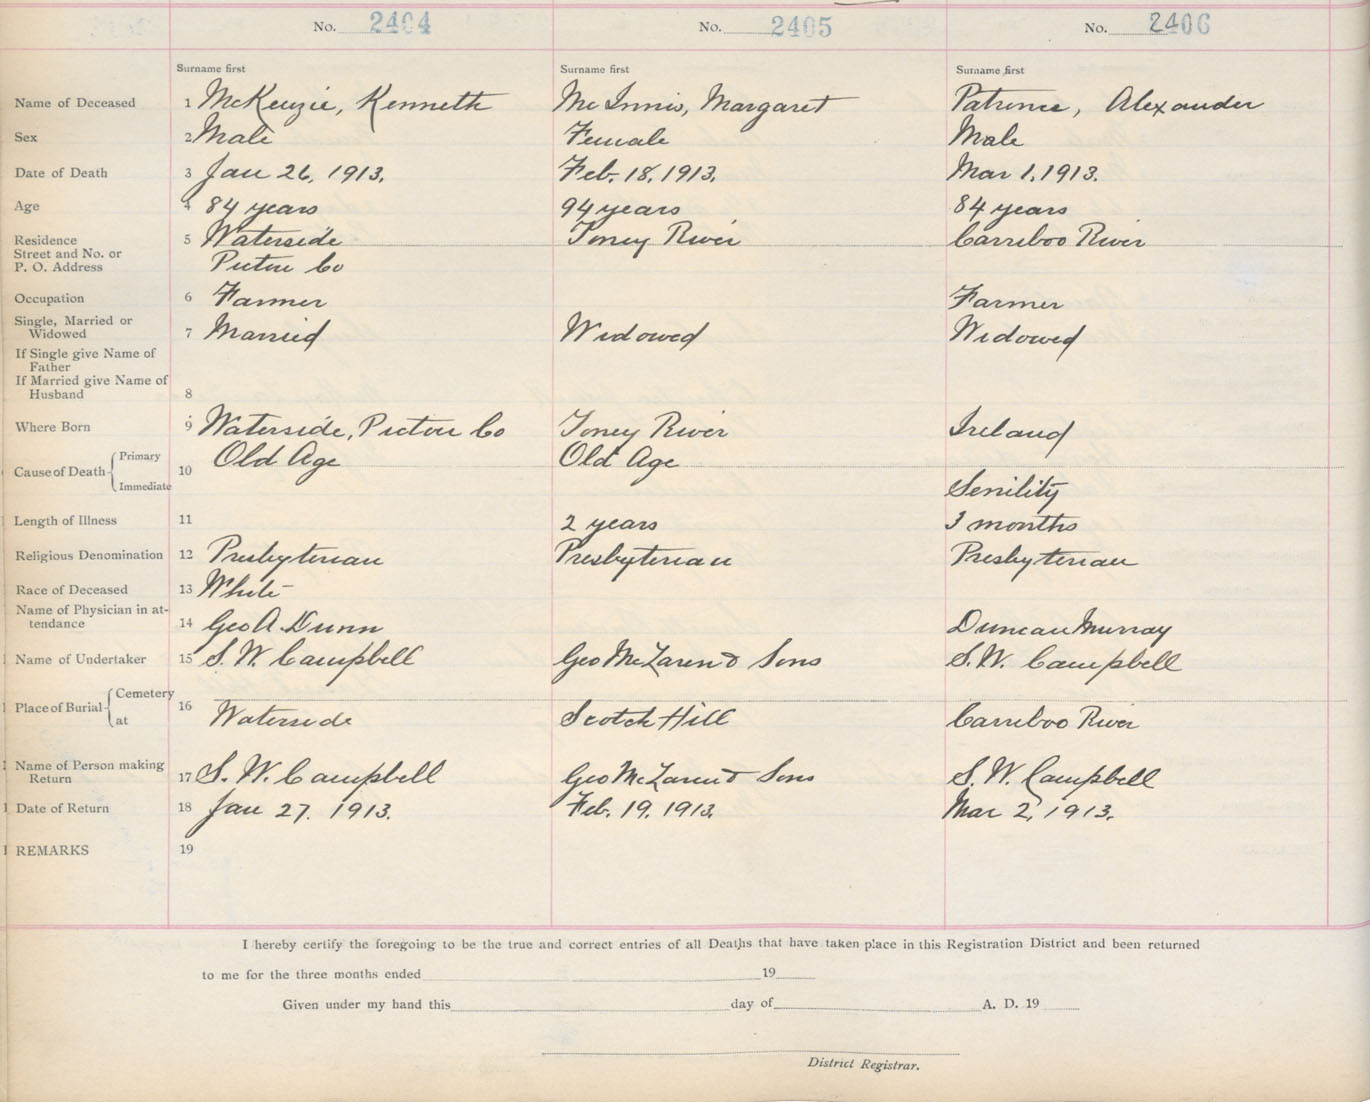 No. 2404 No. 2405 No. 2406
Surname first Surname first Surname first
Name of Deceased 1 McKenzie, Kenneth McInnis, Margaret Patrince, Alexander
Sex 2 Male Female Male
Date of Death 3 Jan 26, 1913. Feb. 18, 1913. Mar 1, 1913.
Age 4 84 years 94 years 84 years
Residence 5 Waterside Toney River Carriboo River
Street and No. or
P. O. Address Pictou Co
Occupation 6 Farmer Farmer
Single, Married or
Widowed 7 Married Widowed Widowed
If Single give Name of
Father
If Married give Name of
Husband 8
Where Born 9 Waterside, Pictou Co Toney River Ireland
Cause of Death Primary Old Age Old Age
10
Immediate Senility
Length of Illness 11 2 years 3 months
Religious Denomination 12 Presbyterian Presbyterian Presbyterian
Race of Deceased 13 White
Name of Physician in at-
tendance 14 Geo A. Dunn Duncan Murray
Name of Undertaker 15 S. W. Campbell Geo McLaren & Sons S. W. Campbell
Place of Burial Cemetery
16
at Waterside Scotch Hill Carriboo River
Name of Person making
Return 17 S. W. Campbell Geo McLaren & Sons S. W. Campbell
Date of Return 18 Jan 27. 1913. Feb. 19, 1913. Mar 2, 1913.
REMARKS 19
I hereby certify the foregoing to be the true and correct entries of all Deaths that have taken place in this Registration District and been returned
to me for the three months ended 19
Given under my hand this day of A. D. 19
District Registrar.